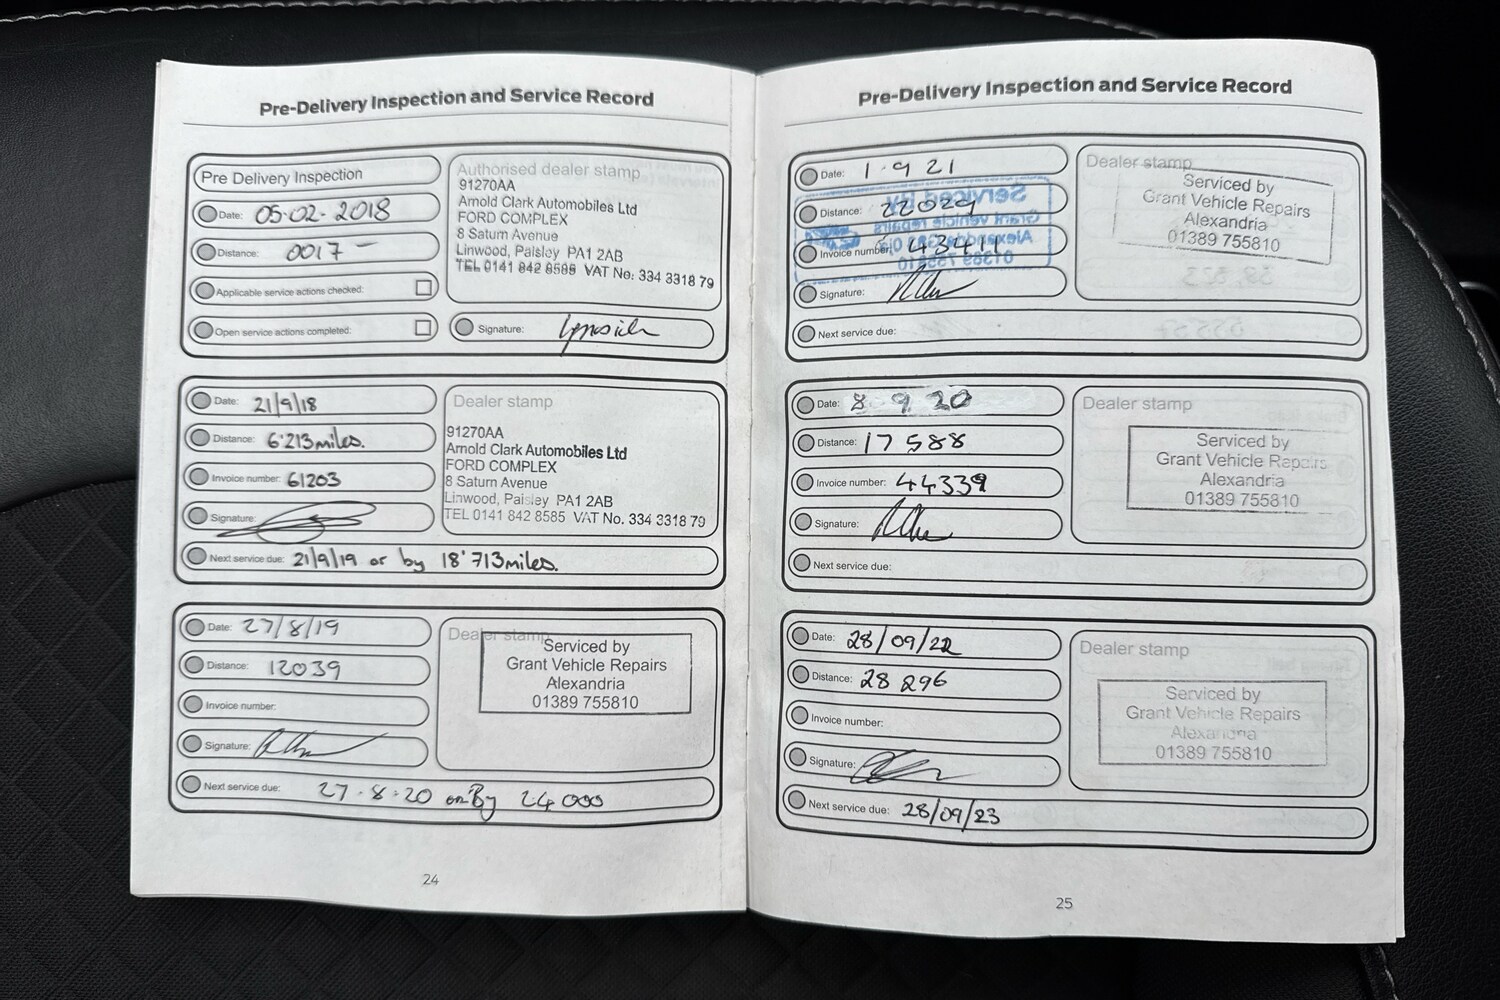 Pre-Delivery Inspection and Service Record
Pre Delivery Inspection
Date: 05-02-2018
Distance: 0017 –
Applicable service actions checked:
Open service actions completed:
Authorised dealer stamp
91270AA
Arnold Clark Automobiles Ltd
FORD COMPLEX
8 Saturn Avenue
Linwood, Paisley PA1 2AB
TEL 0141 842 8585 VAT No. 334 3318 79
Signature:
Date: 21/9/18
Distance: 6'213miles.
Invoice number: 61203
Signature:
Dealer stamp
91270AA
Arnold Clark Automobiles Ltd
FORD COMPLEX
8 Saturn Avenue
Linwood, Paisley PA1 2AB
TEL 0141 842 8585 VAT No. 334 3318 79
Next service due: 21/9/19 or by 18'713miles.
Date: 27/8/19
Distance: 12039
Invoice number:
Signature:
Dealer stamp
Serviced by
Grant Vehicle Repairs
Alexandria
01389 755810
Next service due: 27.8.20 or By 24000
24
Pre-Delivery Inspection and Service Record
Date: 1.9 21
Distance:
Invoice number: 43411
Signature:
Dealer stamp
Serviced by
Grant Vehicle Repairs
Alexandria
01389 755810
Next service due:
Date: 8 9 20
Distance: 17588
Invoice number: 44339
Signature:
Dealer stamp
Serviced by
Grant Vehicle Repairs
Alexandria
01389 755810
Next service due:
Date: 28/09/22
Distance: 28 296
Invoice number:
Signature:
Dealer stamp
Serviced by
Grant Vehicle Repairs
Alexandria
01389 755810
Next service due: 28/09/23
25